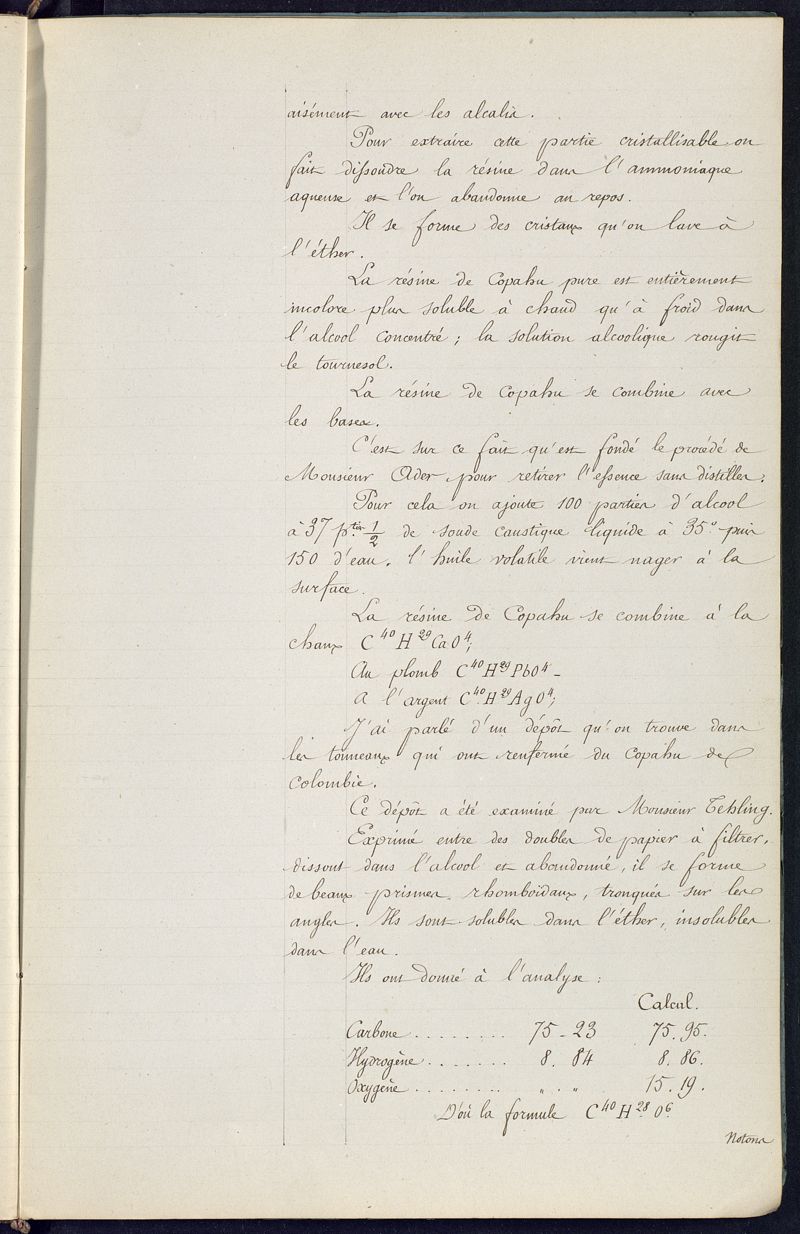 aisément avec les alcalis.
Pour extraire cette partie cristallisable on
fait dissoudre la résine dans l'ammoniaque
aqueuse et l'on abandonne au repos.
Il se forme des cristaux qu'on lave à
l'éther.
La résine de Copahu pure est entièrement
incolore plus soluble à chaud qu'à froid dans
l'alcool concentré ; la solution alcoolique rougit
le tournesol.
La résine de Copahu se combine avec
les bases.
C'est sur ce fait qu'est fondé le procédé de
Monsieur Ader, pour retirer l'essence sans distiller.
Pour cela on ajoute 100 parties d'alcool
à 37 p.ties 1/2 de soude caustique liquide à 35° puis
150 d'eau. l'huile volatile vient nager à la
surface.
La résine de Copahu se combine à la
chaux C⁴⁰H²⁹CaO⁴;
Au plomb C⁴⁰H²⁹PbO⁴ -
A l'argent C⁴⁰H²⁹AgO⁴;
J'ai parlé d'un dépôt qu'on trouve dans
les tonneaux qui ont renfermé du Copahu de
Colombie.
Ce dépôt a été examiné par Monsieur Fehling.
Exprimé entre des doubles de papier à filtrer,
dissout dans l'alcool et abandonné, il se forme
de beaux prismes rhomboïdaux, tronqués sur les
angles. Ils sont solubles dans l'éther, insolubles
dans l'eau.
Ils ont donné à l'analyse :
Calcul.
Carbone ......... 75-23 75.95.
Hydrogène ....... 8.84 8.86.
Oxygène ......... " . " 15.19.
D'où la formule C⁴⁰H²⁸O⁶.
Notons